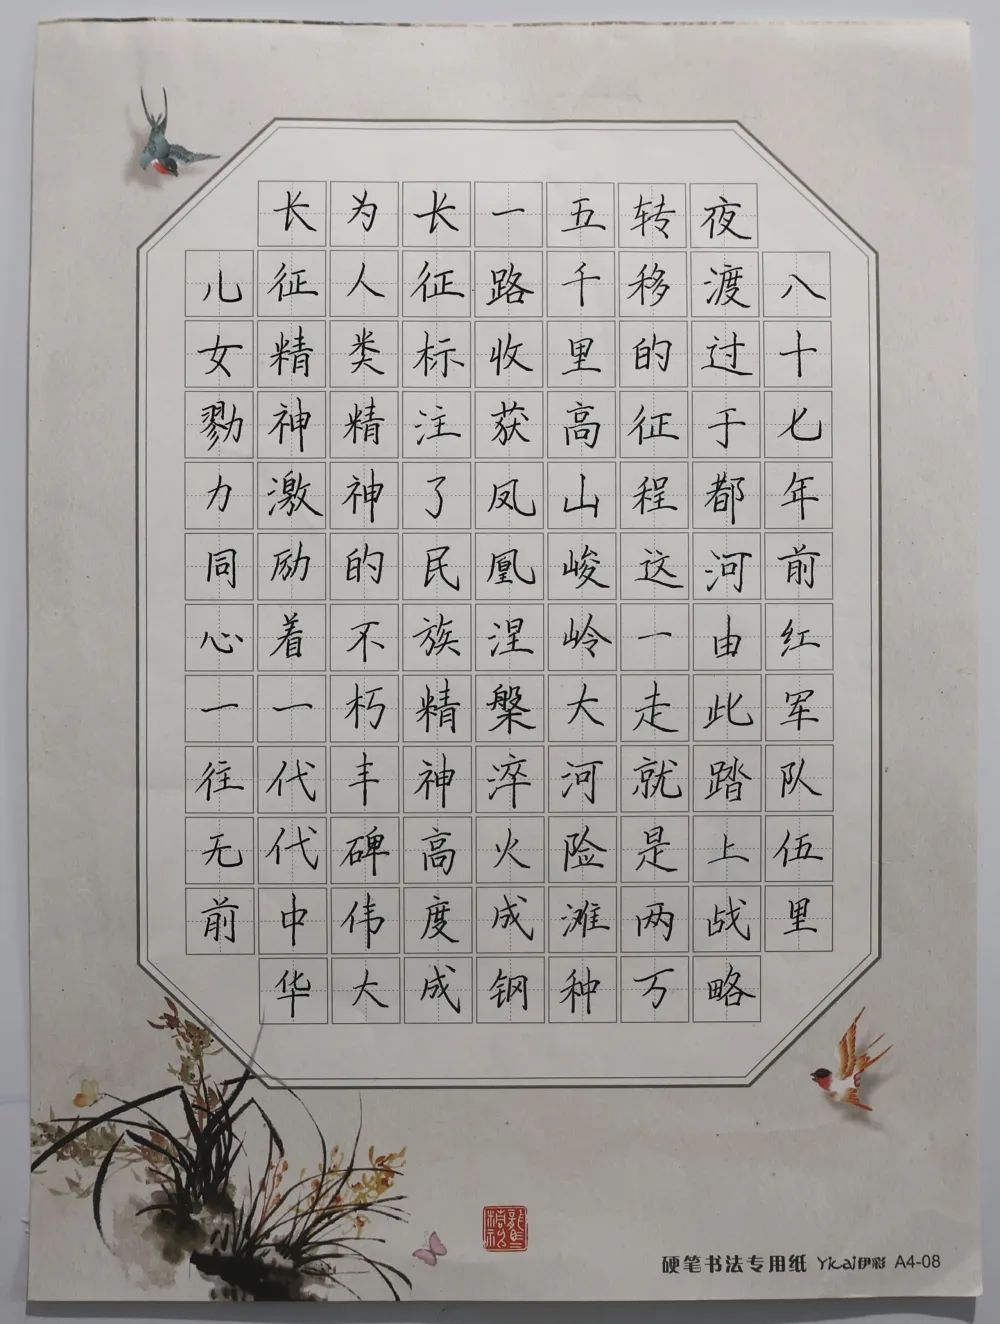 八十七年前红军队伍里
夜渡过于都河由此踏上战略
转移的征程这一走就是两万
五千里高山峻岭大河险滩种
一路收获凤凰涅槃淬火成钢
长征标注了民族精神高度成
为人类精神的不朽丰碑伟大
长征精神激励着一代代中华
儿女勠力同心一往无前
硬笔书法专用纸 Yicai伊彩 A4-08